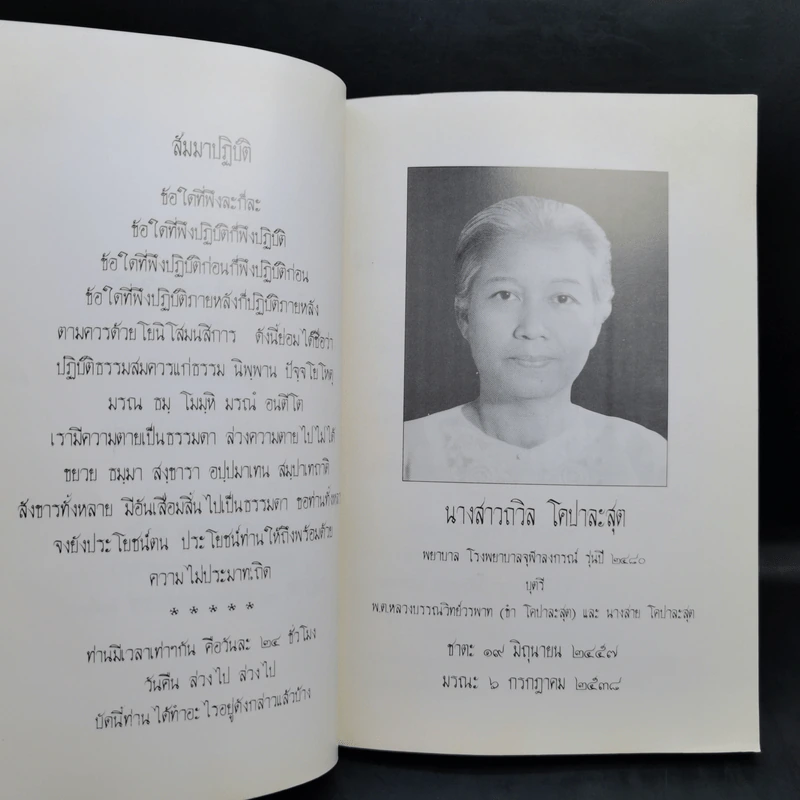 สัมมาปฏิบัติ
ข้อใดที่พึงละก็ละ
ข้อใดที่พึงปฏิบัติก็พึงปฏิบัติ
ข้อใดที่พึงปฏิบัติก่อนก็พึงปฏิบัติก่อน
ข้อใดที่พึงปฏิบัติภายหลังก็ปฏิบัติภายหลัง
ตามควรด้วยโยนิโสมนสิการ ดังนี้ย่อมได้ชื่อว่า
ปฏิบัติธรรมสมควรแก่ธรรม นิพฺพาน ปัจฺจโยโหตุ
มรณ ธมฺ โมมฺหิ มรณํ อนตีโต
เรามีความตายเป็นธรรมดา ล่วงความตายไปไม่ได้
ขยวย ธมฺมา สงฺขารา อปฺปมาเทน สมฺปาเทถาติ
สังขารทั้งหลาย มีอันเสื่อมสิ้นไปเป็นธรรมดา ขอท่านทั้ง
จงยังประโยชน์ตน ประโยชน์ท่านให้ถึงพร้อมด้วย
ความไม่ประมาทเถิด
* * * * *
ท่านมีเวลาเท่าๆกัน คือวันละ ๒๔ ชั่วโมง
วันคืน ล่วงไป ล่วงไป
บัดนี้ท่านได้ทำอะไรอยู่ดังกล่าวแล้วบ้าง
นางสาวถวิล โคปาละสุต
พยาบาล โรงพยาบาลจุฬาลงกรณ์ รุ่นปี ๒๔๘๐
บุตรี
พ.ต.หลวงบรรณวิทย์วรพาท (ขำ โคปาละสุต) และ นางสาย โคปาละสุต
ชาตะ ๑๙ มิถุนายน ๒๔๕๗
มรณะ ๖ กรกฎาคม ๒๕๓๘